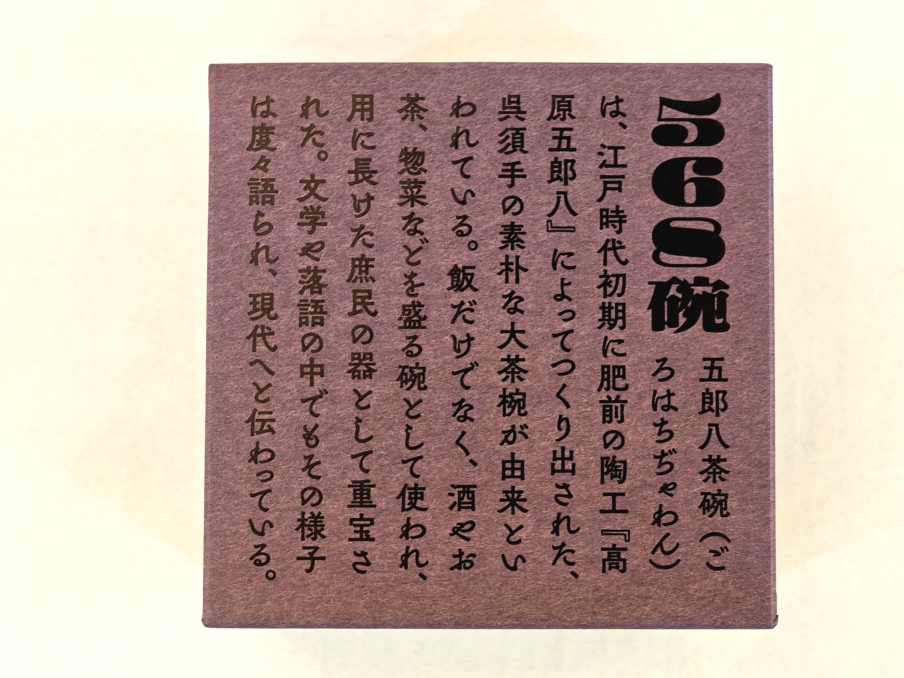 568碗
五郎八茶碗（ご
ろはちぢゃわん）
は、江戸時代初期に肥前の陶工『高
原五郎八』によってつくり出された、
呉須手の素朴な大茶椀が由来とい
われている。飯だけでなく、酒やお
茶、惣菜などを盛る碗として使われ、
用に長けた庶民の器として重宝さ
れた。文学や落語の中でもその様子
は度々語られ、現代へと伝わっている。